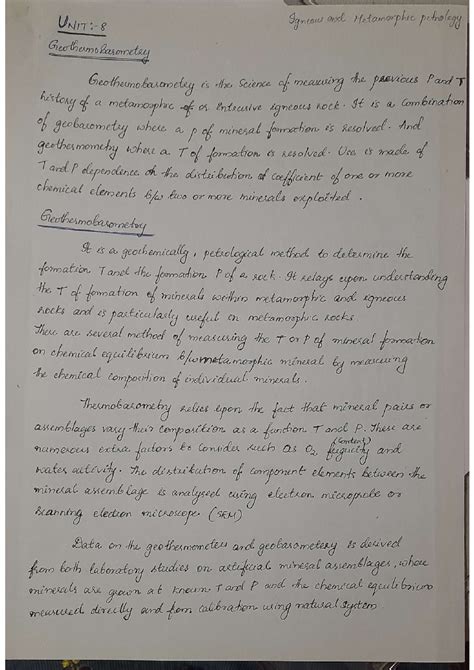 UNIT:-8
Igneous and Metamorphic petrology
Geothermobarometry
Geothermobarometry is the Science of measuring the previous P and T
history of a metamorphic of or Intrusive igneous rock. It is a combination
of geobarometry where a P of mineral formation is resolved. And
geothermometry where a T of formation is resolved. Use is made of
T and P dependence on the distribution of coefficient of one or more
chemical elements b/w two or more minerals exploited.
Geothermobarometry
It is a geochemically, petrological method to determine the
formation T and the formation P of a rock. It relays upon understanding
the T of formation of minerals within metamorphic and igneous
rocks and is particularly useful on metamorphic rocks.
There are several method of measuring the T or P of mineral formation
on chemical equilibrium b/w metamorphic mineral by measuring
the chemical composition of individual minerals.
Thermobarometry relies upon the fact that mineral pairs or
assemblages vary their composition as a function T and P. There are
numerous extra factors to consider such as O2 fugucity (content) and
water activity. The distribution of component elements between the
mineral assemblage is analysed using electron microprobe or
scanning electron microscope. (SEM)
Data on the geothermometers and geobarometery is derived
from both laboratory studies on artificial mineral assemblages, where
minerals are grown at known T and P and the chemical equilibrium
measured directly and from calibration using natural system.